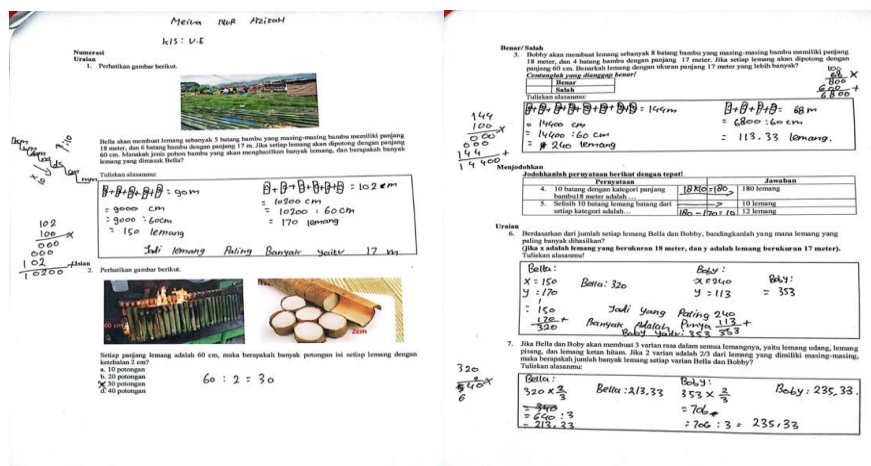 Meiva NUR Azizah
kls : V.E
Numerasi
Uraian
1. Perhatikan gambar berikut.
Bella akan membuat lemang sebanyak 5 batang bambu yang masing-masing bambu memiliki panjang
18 meter, dan 6 batang bambu dengan panjang 17 m. Jika setiap lemang akan dipotong dengan panjang
60 cm. Manakah jenis pohon bambu yang akan menghasilkan banyak lemang, dan berapakah banyak
lemang yang dimasak Bella?
Tuliskan alasanmu:
= 90 m
= 9000 cm
= 9000 : 60cm
= 150 lemang
= 102 m
= 10200 cm
= 10200 : 60 cm
= 170 lemang
Jadi lemang Paling Banyak yaitu 17 m
102
100 x
000
000
102
10200
Isian
2. Perhatikan gambar berikut.
60 cm
2cm
Setiap panjang lemang adalah 60 cm, maka berapakah banyak potongan isi setiap lemang dengan
ketebalan 2 cm?
a. 10 potongan
b. 20 potongan
c. 30 potongan
d. 40 potongan
60 : 2 = 30
Benar/ Salah
3. Bobby akan membuat lemang sebanyak 8 batang bambu yang masing-masing bambu memiliki panjang
18 meter, dan 4 batang bambu dengan panjang 17 meter. Jika setiap lemang akan dipotong dengan
panjang 60 cm. Benarkah lemang dengan ukuran panjang 17 meter yang lebih banyak?
Centanglah yang dianggap benar!
Benar
Salah
Tuliskan alasanmu:
100
68 x
800
600 +
6800
= 144m
= 14400 cm
= 14400 : 60 cm
= 240 lemang
= 68 m
= 6800 : 60 cm
= 113.33 lemang.
144
100 x
000
000
144 +
14400
Menjodohkan
Jodohkanlah pernyataan berikut dengan tepat!
Pernyataan Jawaban
4. 10 batang dengan kategori panjang 18x10=180 180 lemang
bambu18 meter adalah ...
5. Selisih 10 batang lemang batang dari 10 lemang
setiap kategori adalah... 180 - 170 = 10 12 lemang
Uraian
6. Berdasarkan dari jumlah setiap lemang Bella dan Bobby, bandingkanlah yang mana lemang yang
paling banyak dihasilkan?
(jika x adalah lemang yang berukuran 18 meter, dan y adalah lemang berukuran 17 meter).
Tuliskan alasanmu!
Bella :
x = 150
y : 170
= 150
170 +
320
Bella : 320
Boby :
x = 240
y = 113
Boby :
= 353
240
113 +
353
Jadi yang Paling
Banyak Adalah Punya
Boby yaitu 353
7. Jika Bella dan Boby akan membuat 3 varian rasa dalam semua lemangnya, yaitu lemang udang, lemang
pisang, dan lemang ketan hitam. Jika 2 varian adalah 2/3 dari lemang yang dimiliki masing-masing,
maka berapakah jumlah banyak lemang setiap varian Bella dan Bobby?
Tuliskan alasanmu:
Bella :
320 x 2/3
= 640 : 3
= 213,33
Bella : 213,33
Boby :
353 x 2/3
= 706
= 706 : 3 = 235,33
Boby : 235,33.